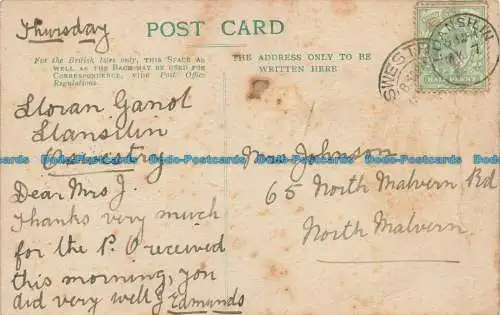 Thursday
POST CARD
For the British Isles only, this Space as
well as the Back may be used for
Correspondence, vide Post Office
Regulations.
THE ADDRESS ONLY TO BE
WRITTEN HERE
Lloran Ganol
Llansilin
Oswestry
Dear Mrs J.
Thanks very much
for the P. O received
this morning, you
did very well J Edmunds
Johnson
65 North Malvern Rd
North Malvern.
Bodo-Postcards Bodo-Postcards Bodo-Postcards Bodo-Postcards